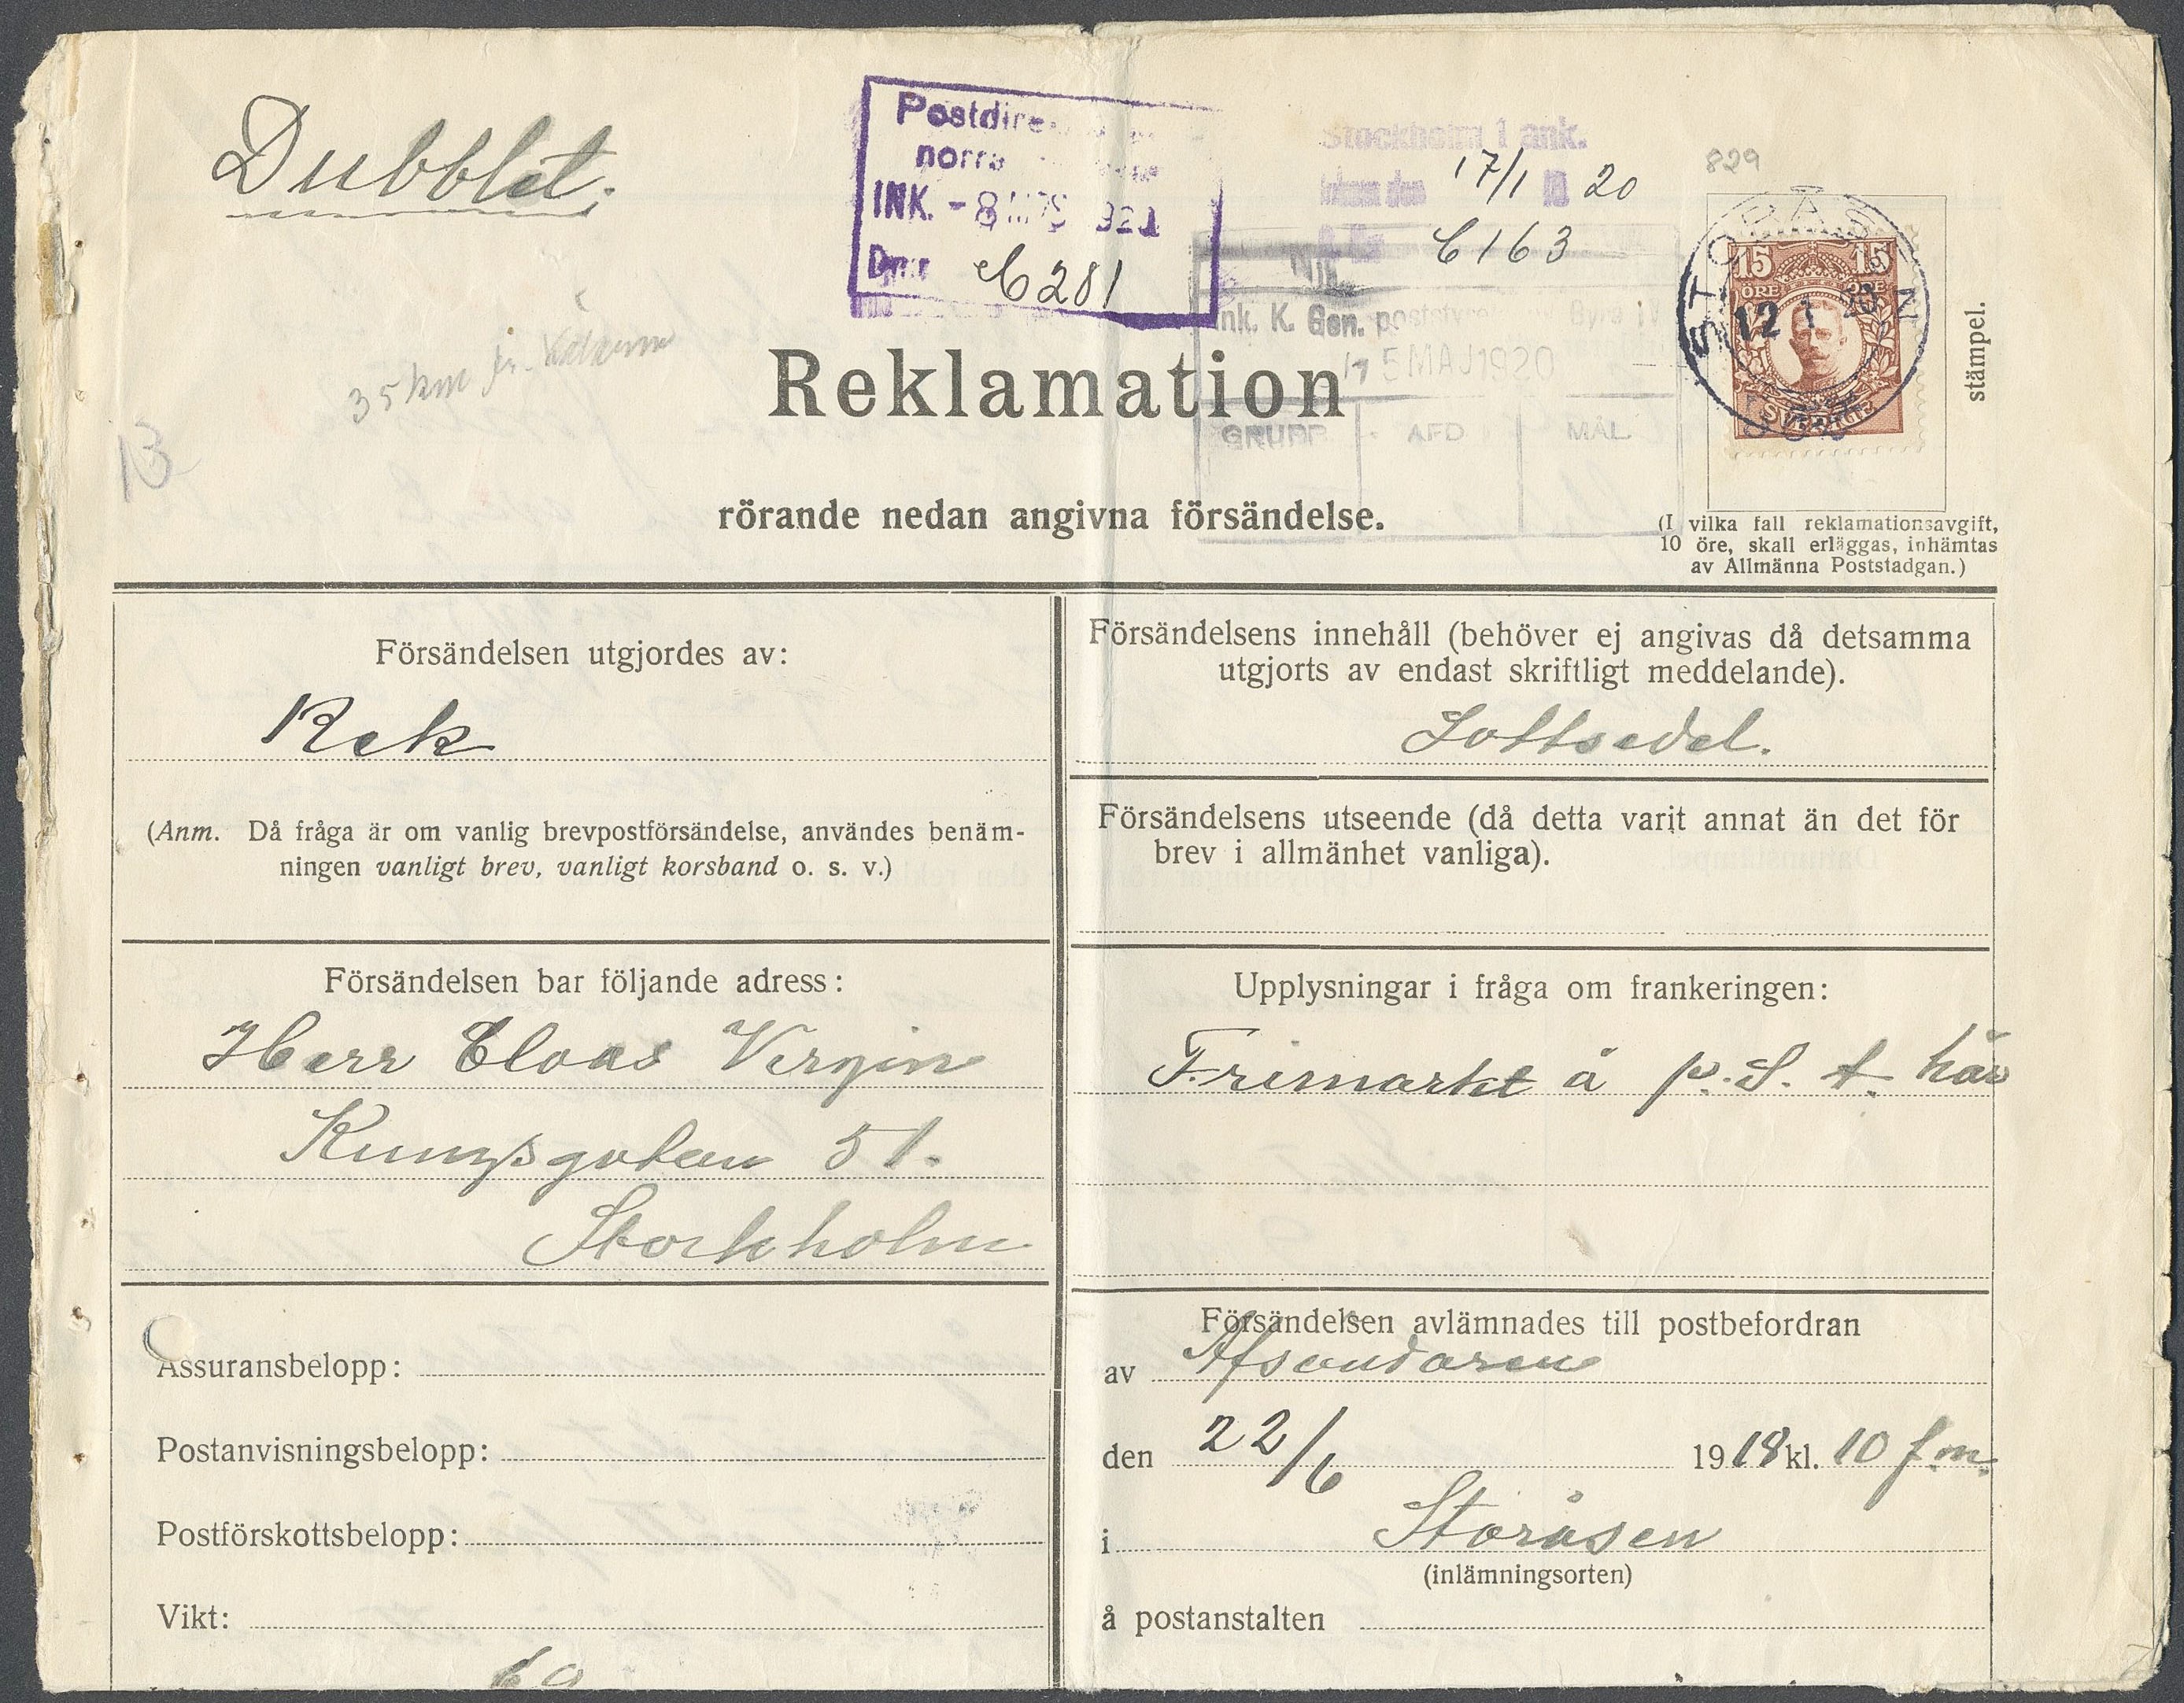 Dubblet.
Postdire
norra
INK. - 8 MRS 1921
Dnr C 281
Stockholm 1 ank.
Inkom den 17/1 20
D. Nr C 163
829
Ink. K. Gen. poststyrelsen Byrå IV
15 MAJ 1920
GRUPP AFD MÅL
STORÅSEN
12 1 20
15 15
ÖRE ÖRE
SVERIGE
stämpel.
35 km fr.
13
Reklamation
rörande nedan angivna försändelse.
(I vilka fall reklamationsavgift,
10 öre, skall erläggas, inhämtas
av Allmänna Poststadgan.)
Försändelsen utgjordes av:
Rek
(Anm. Då fråga är om vanlig brevpostförsändelse, användes benäm-
ningen vanligt brev, vanligt korsband o. s. v.)
Försändelsen bar följande adress:
Herr Claas Virgin
Kungsgatan 51.
Stockholm
Assuransbelopp:
Postanvisningsbelopp:
Postförskottsbelopp:
Vikt:
Försändelsens innehåll (behöver ej angivas då detsamma
utgjorts av endast skriftligt meddelande).
Lottsedel.
Försändelsens utseende (då detta varit annat än det för
brev i allmänhet vanliga).
Upplysningar i fråga om frankeringen:
Frimarkt å p. S. t. här
Försändelsen avlämnades till postbefordran
av Afsändaren
den 22/6 1918 kl. 10 f.m.
i Storåsen
(inlämningsorten)
å postanstalten